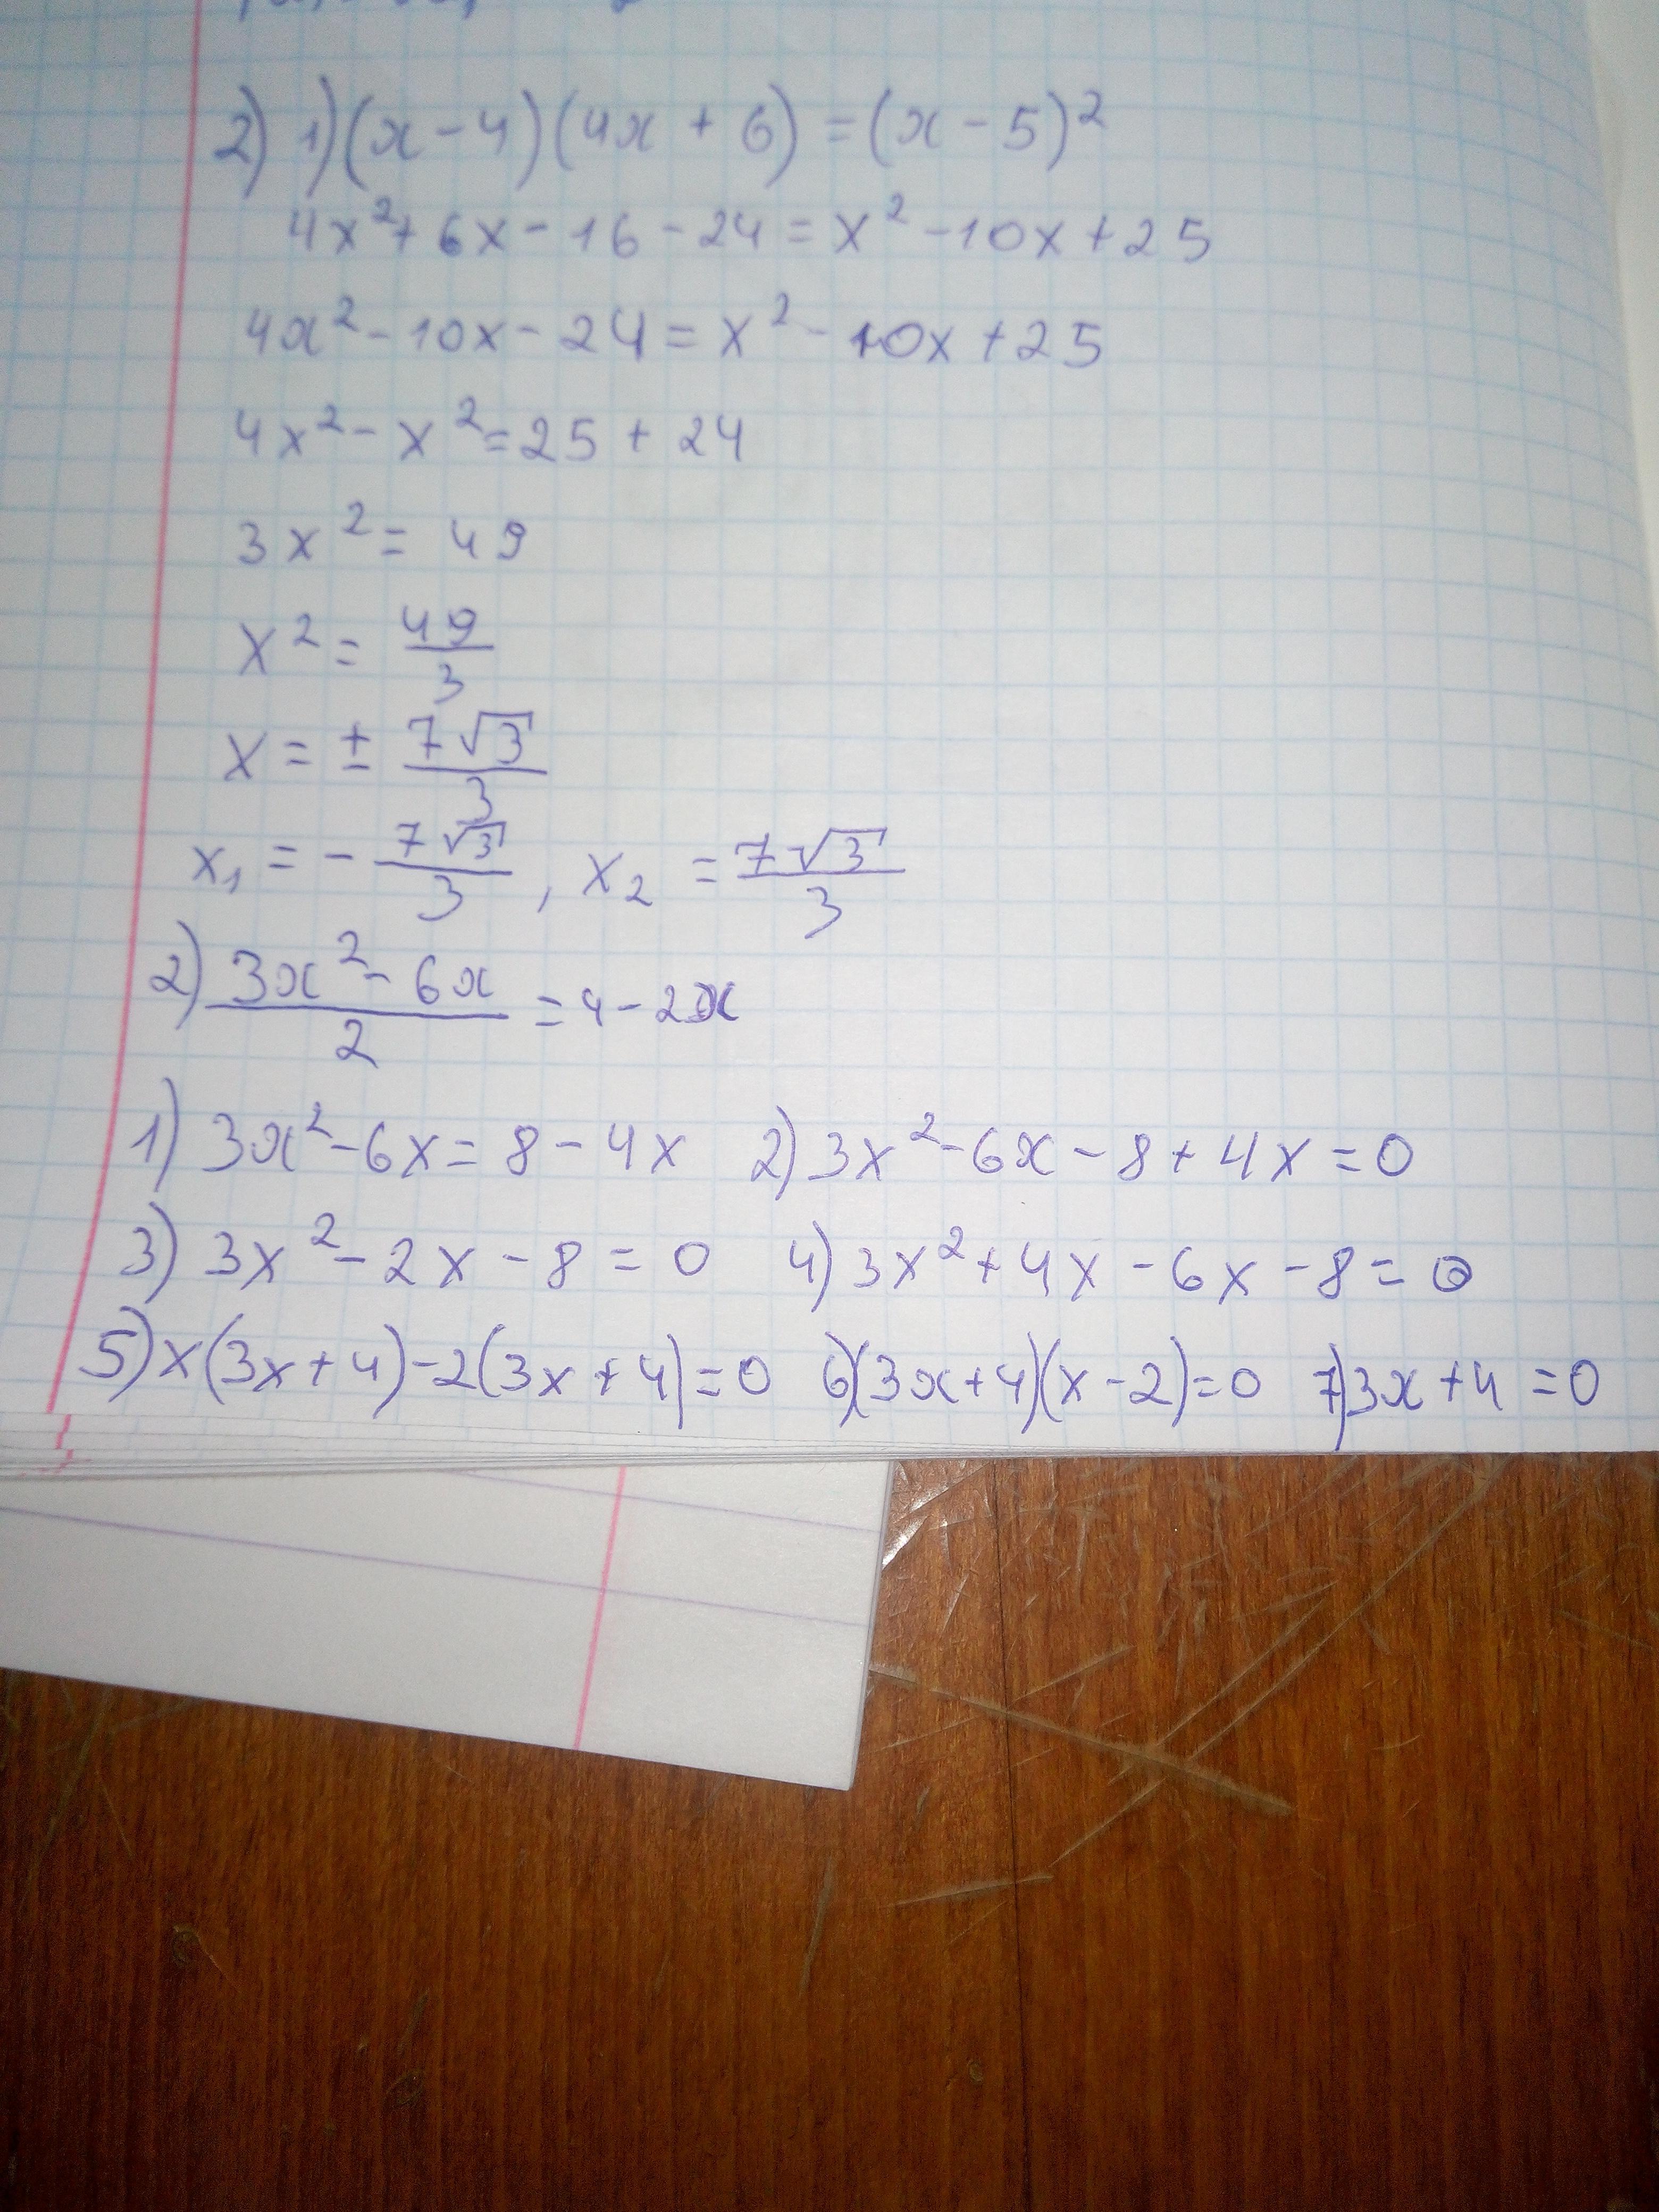 2) 1) (x - 4)(4x + 6) = (x - 5)²
4x² + 6x - 16 - 24 = x² - 10x + 25
4x² - 10x - 24 = x² - 10x + 25
4x² - x² = 25 + 24
3x² = 49
x² = 49/3
x = ± 7√3/3
x₁ = - 7√3/3, x₂ = 7√3/3
2) (3x² - 6x)/2 = 4 - 2x
1) 3x² - 6x = 8 - 4x 2) 3x² - 6x - 8 + 4x = 0
3) 3x² - 2x - 8 = 0 4) 3x² + 4x - 6x - 8 = 0
5) x(3x + 4) - 2(3x + 4) = 0 6) (3x + 4)(x - 2) = 0 7) 3x + 4 = 0